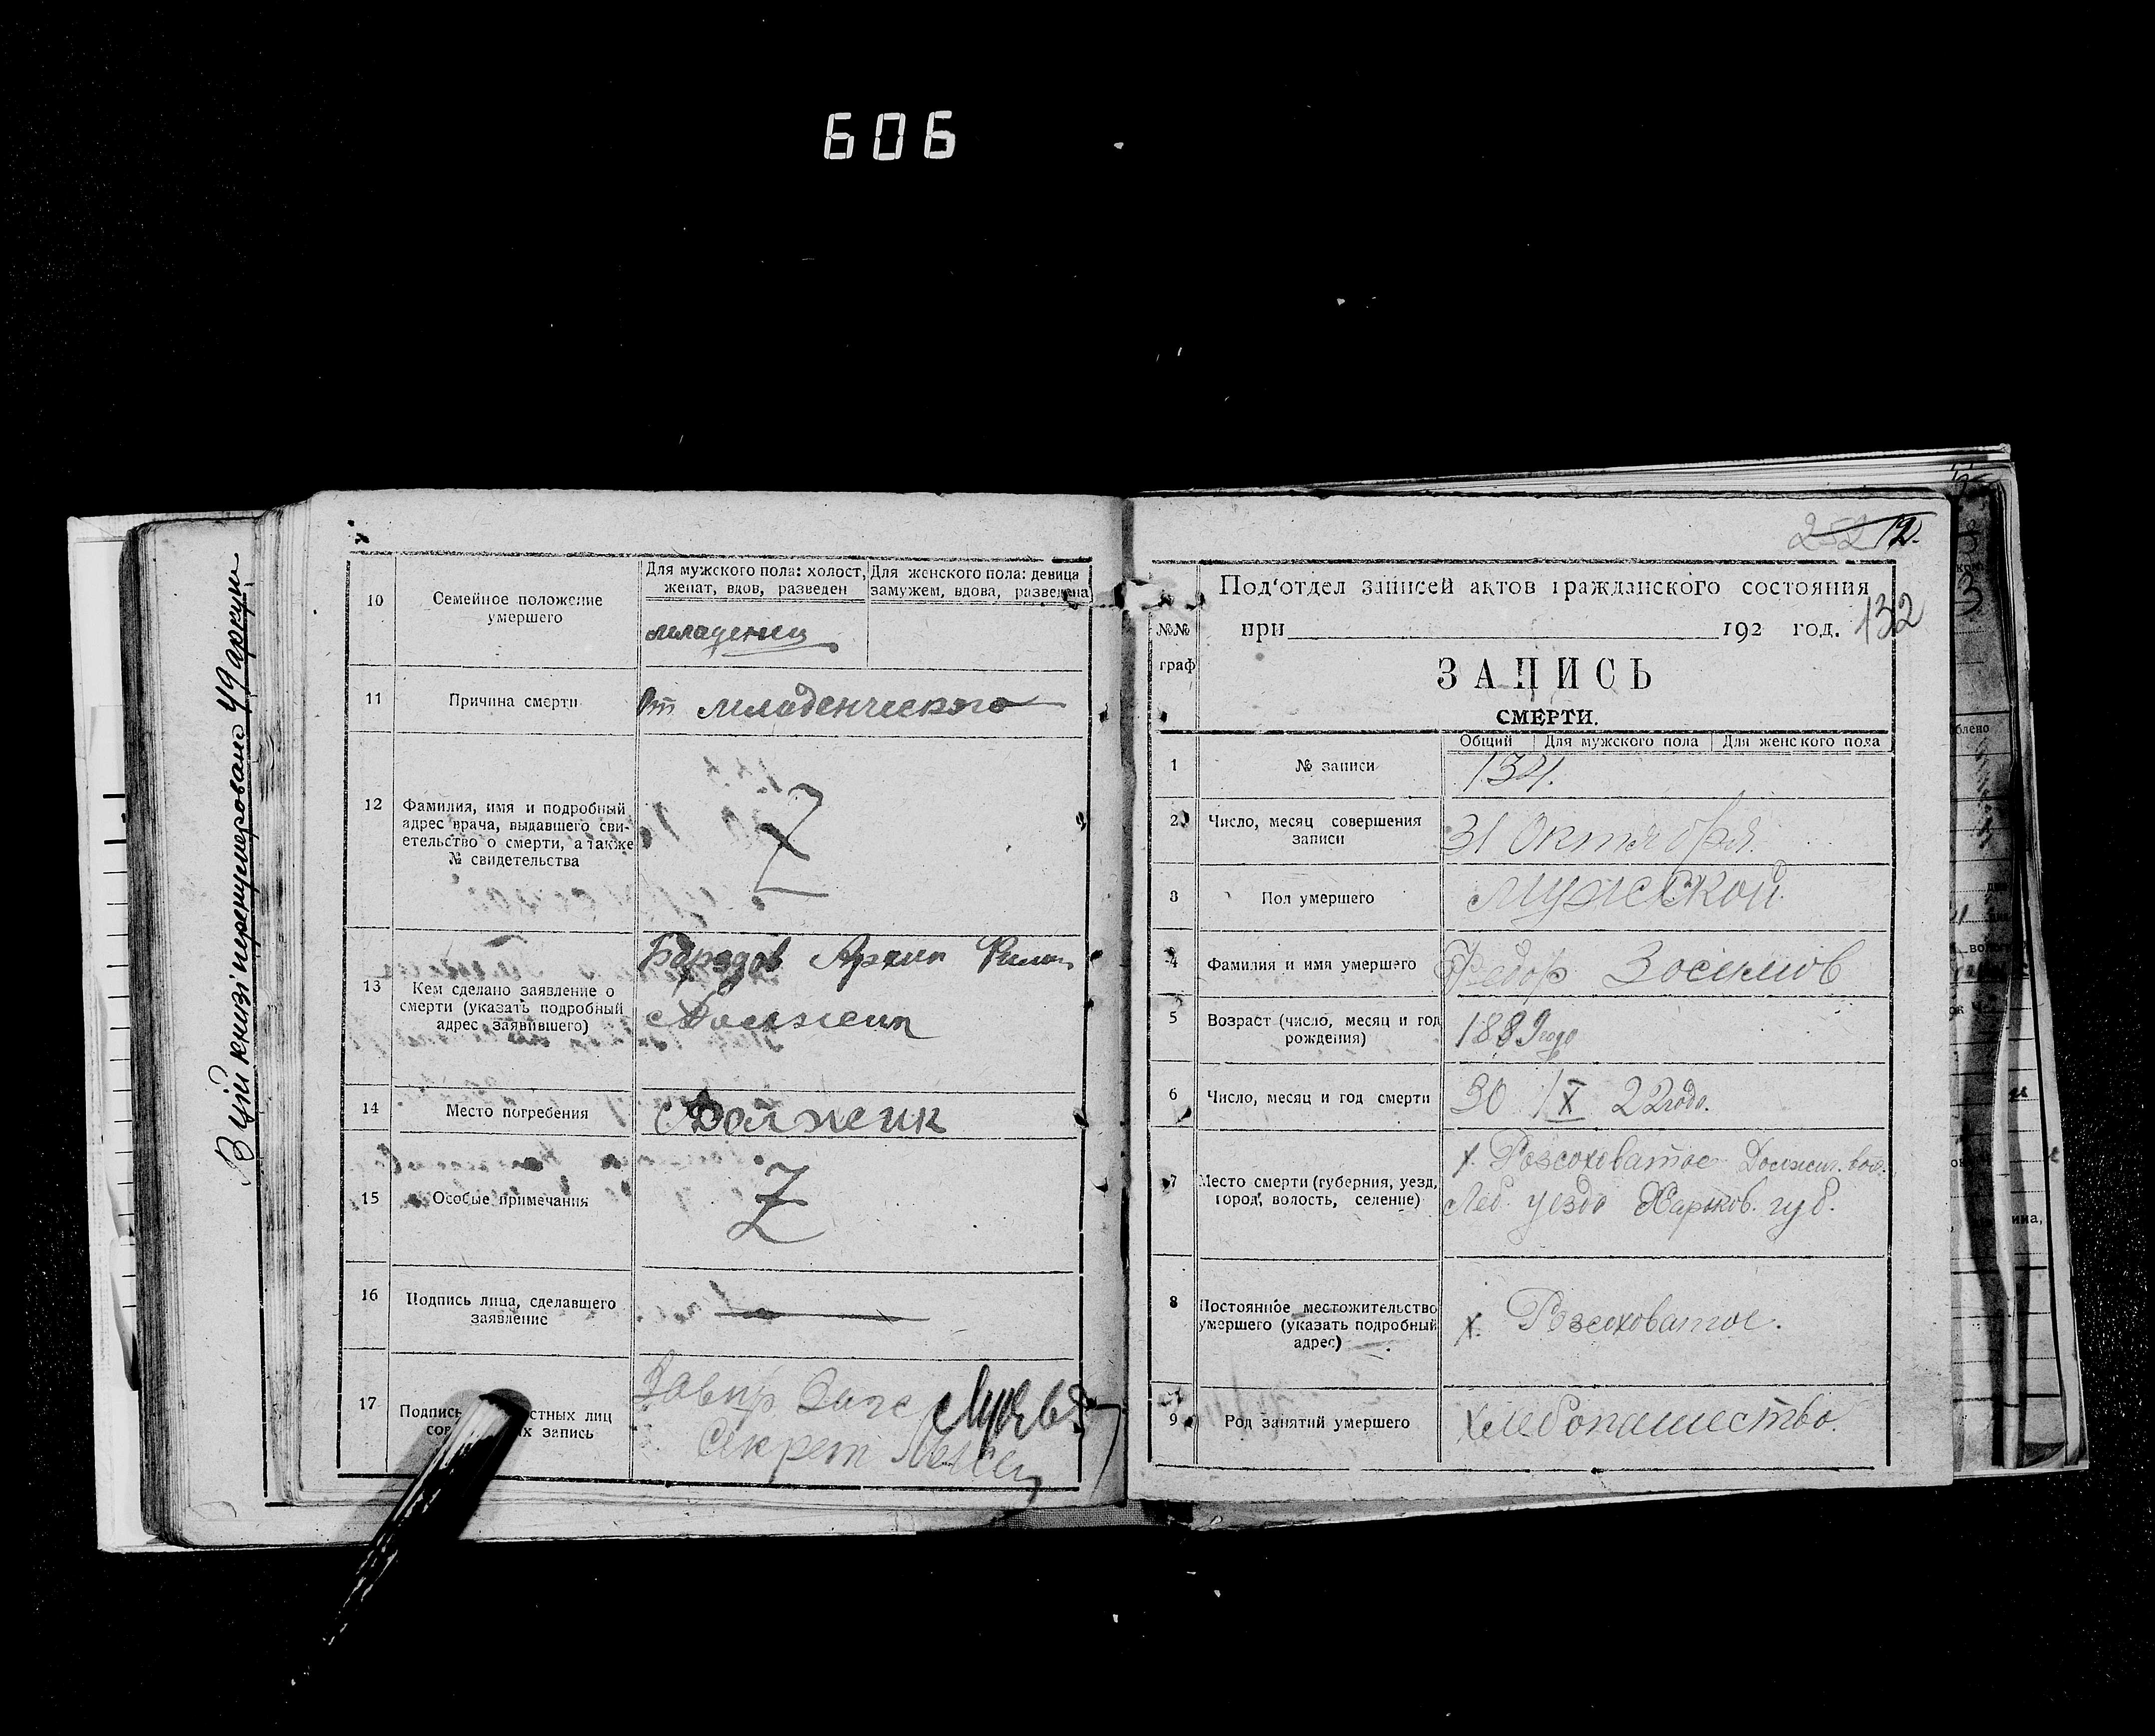 606
В цій книзі перенумеровано 49 аркуш
10
Семейное положение
умершего
Для мужского пола: холост,
женат, вдов, разведен
Для женского пола: девица
замужем, вдова, разведена
младенец
11
Причина смерти
От младенческого
12
Фамилия, имя и подробный
адрес врача, выдавшего сви-
етельство о смерти, а также
№ свидетельства
Z
13
Кем сделано заявление о
смерти (указать подробный
адрес заявившего)
Архип Филип
с Должик
14
Место погребения
с Должик
15
Особые примечания
Z
16
Подпись лица, сделавшего
заявление
17
Подпись стных лиц
х запись
Секрет
252 12.
Под'отдел записей актов гражданского состояния
132
№№
граф
при 192 год.
ЗАПИСЬ
СМЕРТИ.
Общий Для мужского пола Для женского пола
1
№ записи
134.
2
Число, месяц совершения
записи
31 Октября.
3
Пол умершего
мужской.
4
Фамилия и имя умершего
Федор Зосимов
5
Возраст (число, месяц и год
рождения)
1889 года
6
Число, месяц и год смерти
30 /X 22 года.
7
Место смерти (губерния, уезд,
город, волость, селение)
х. Розсоховатое Должик. вол.
Леб. уезда Харьков. губ.
8
Постоянное местожительство
умершего (указать подробный
адрес)
х. Розсоховатое.
9
Род занятий умершего
хлебопашество.